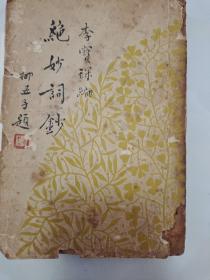 李寶琛編
絕妙詞鈔
柳亞子題